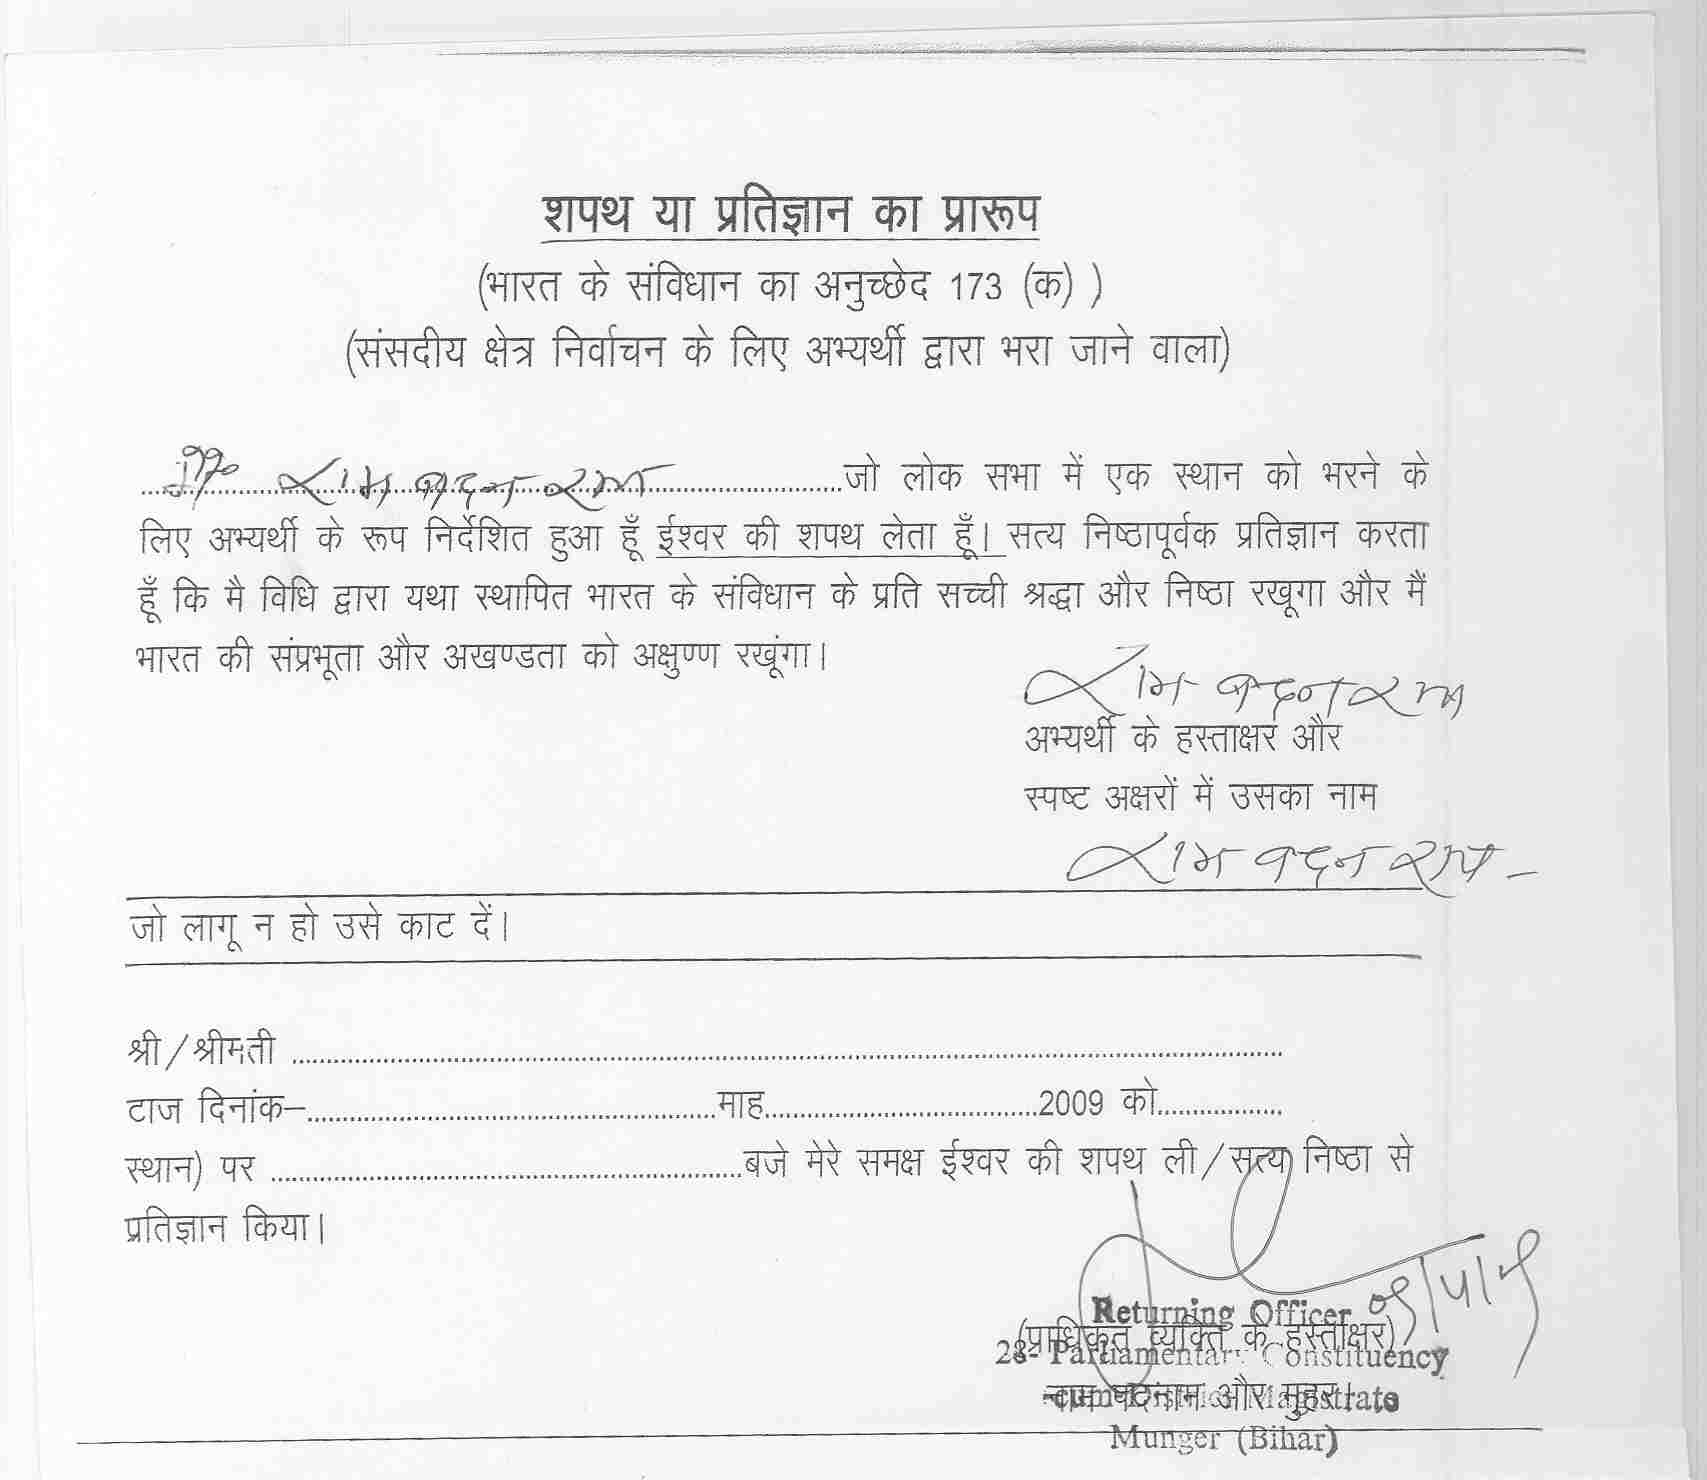 शपथ या प्रतिज्ञान का प्रारूप
(भारत के संविधान का अनुच्छेद 173 (क) )
(संसदीय क्षेत्र निर्वाचन के लिए अभ्यर्थी द्वारा भरा जाने वाला)
राम वदन राय ........जो लोक सभा में एक स्थान को भरने के
लिए अभ्यर्थी के रूप निर्देशित हुआ हूँ ईश्वर की शपथ लेता हूँ। सत्य निष्ठापूर्वक प्रतिज्ञान करता
हूँ कि मै विधि द्वारा यथा स्थापित भारत के संविधान के प्रति सच्ची श्रद्धा और निष्ठा रखूगा और मैं
भारत की संप्रभूता और अखण्डता को अक्षुण्ण रखूंगा।
राम वदन राय
अभ्यर्थी के हस्ताक्षर और
स्पष्ट अक्षरों में उसका नाम
राम वदन राय
जो लागू न हो उसे काट दें।
श्री/श्रीमती ........
टाज दिनांक–........माह........2009 को........
स्थान) पर ........बजे मेरे समक्ष ईश्वर की शपथ ली/सत्य निष्ठा से
प्रतिज्ञान किया।
Returning Officer
(प्राधिकृत व्यक्ति के हस्ताक्षर)
28- Parliamentary Constituency
नाम पदनाम और मुहर।
-cum-District Magistrate
Munger (Bihar)